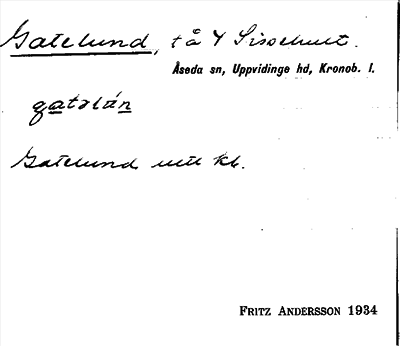 Gatelund, tå Y Sissehult.
Åseda sn, Uppvidinge hd, Kronob. l.
Gatelund utt kb.
FRITZ ANDERSSON 1934